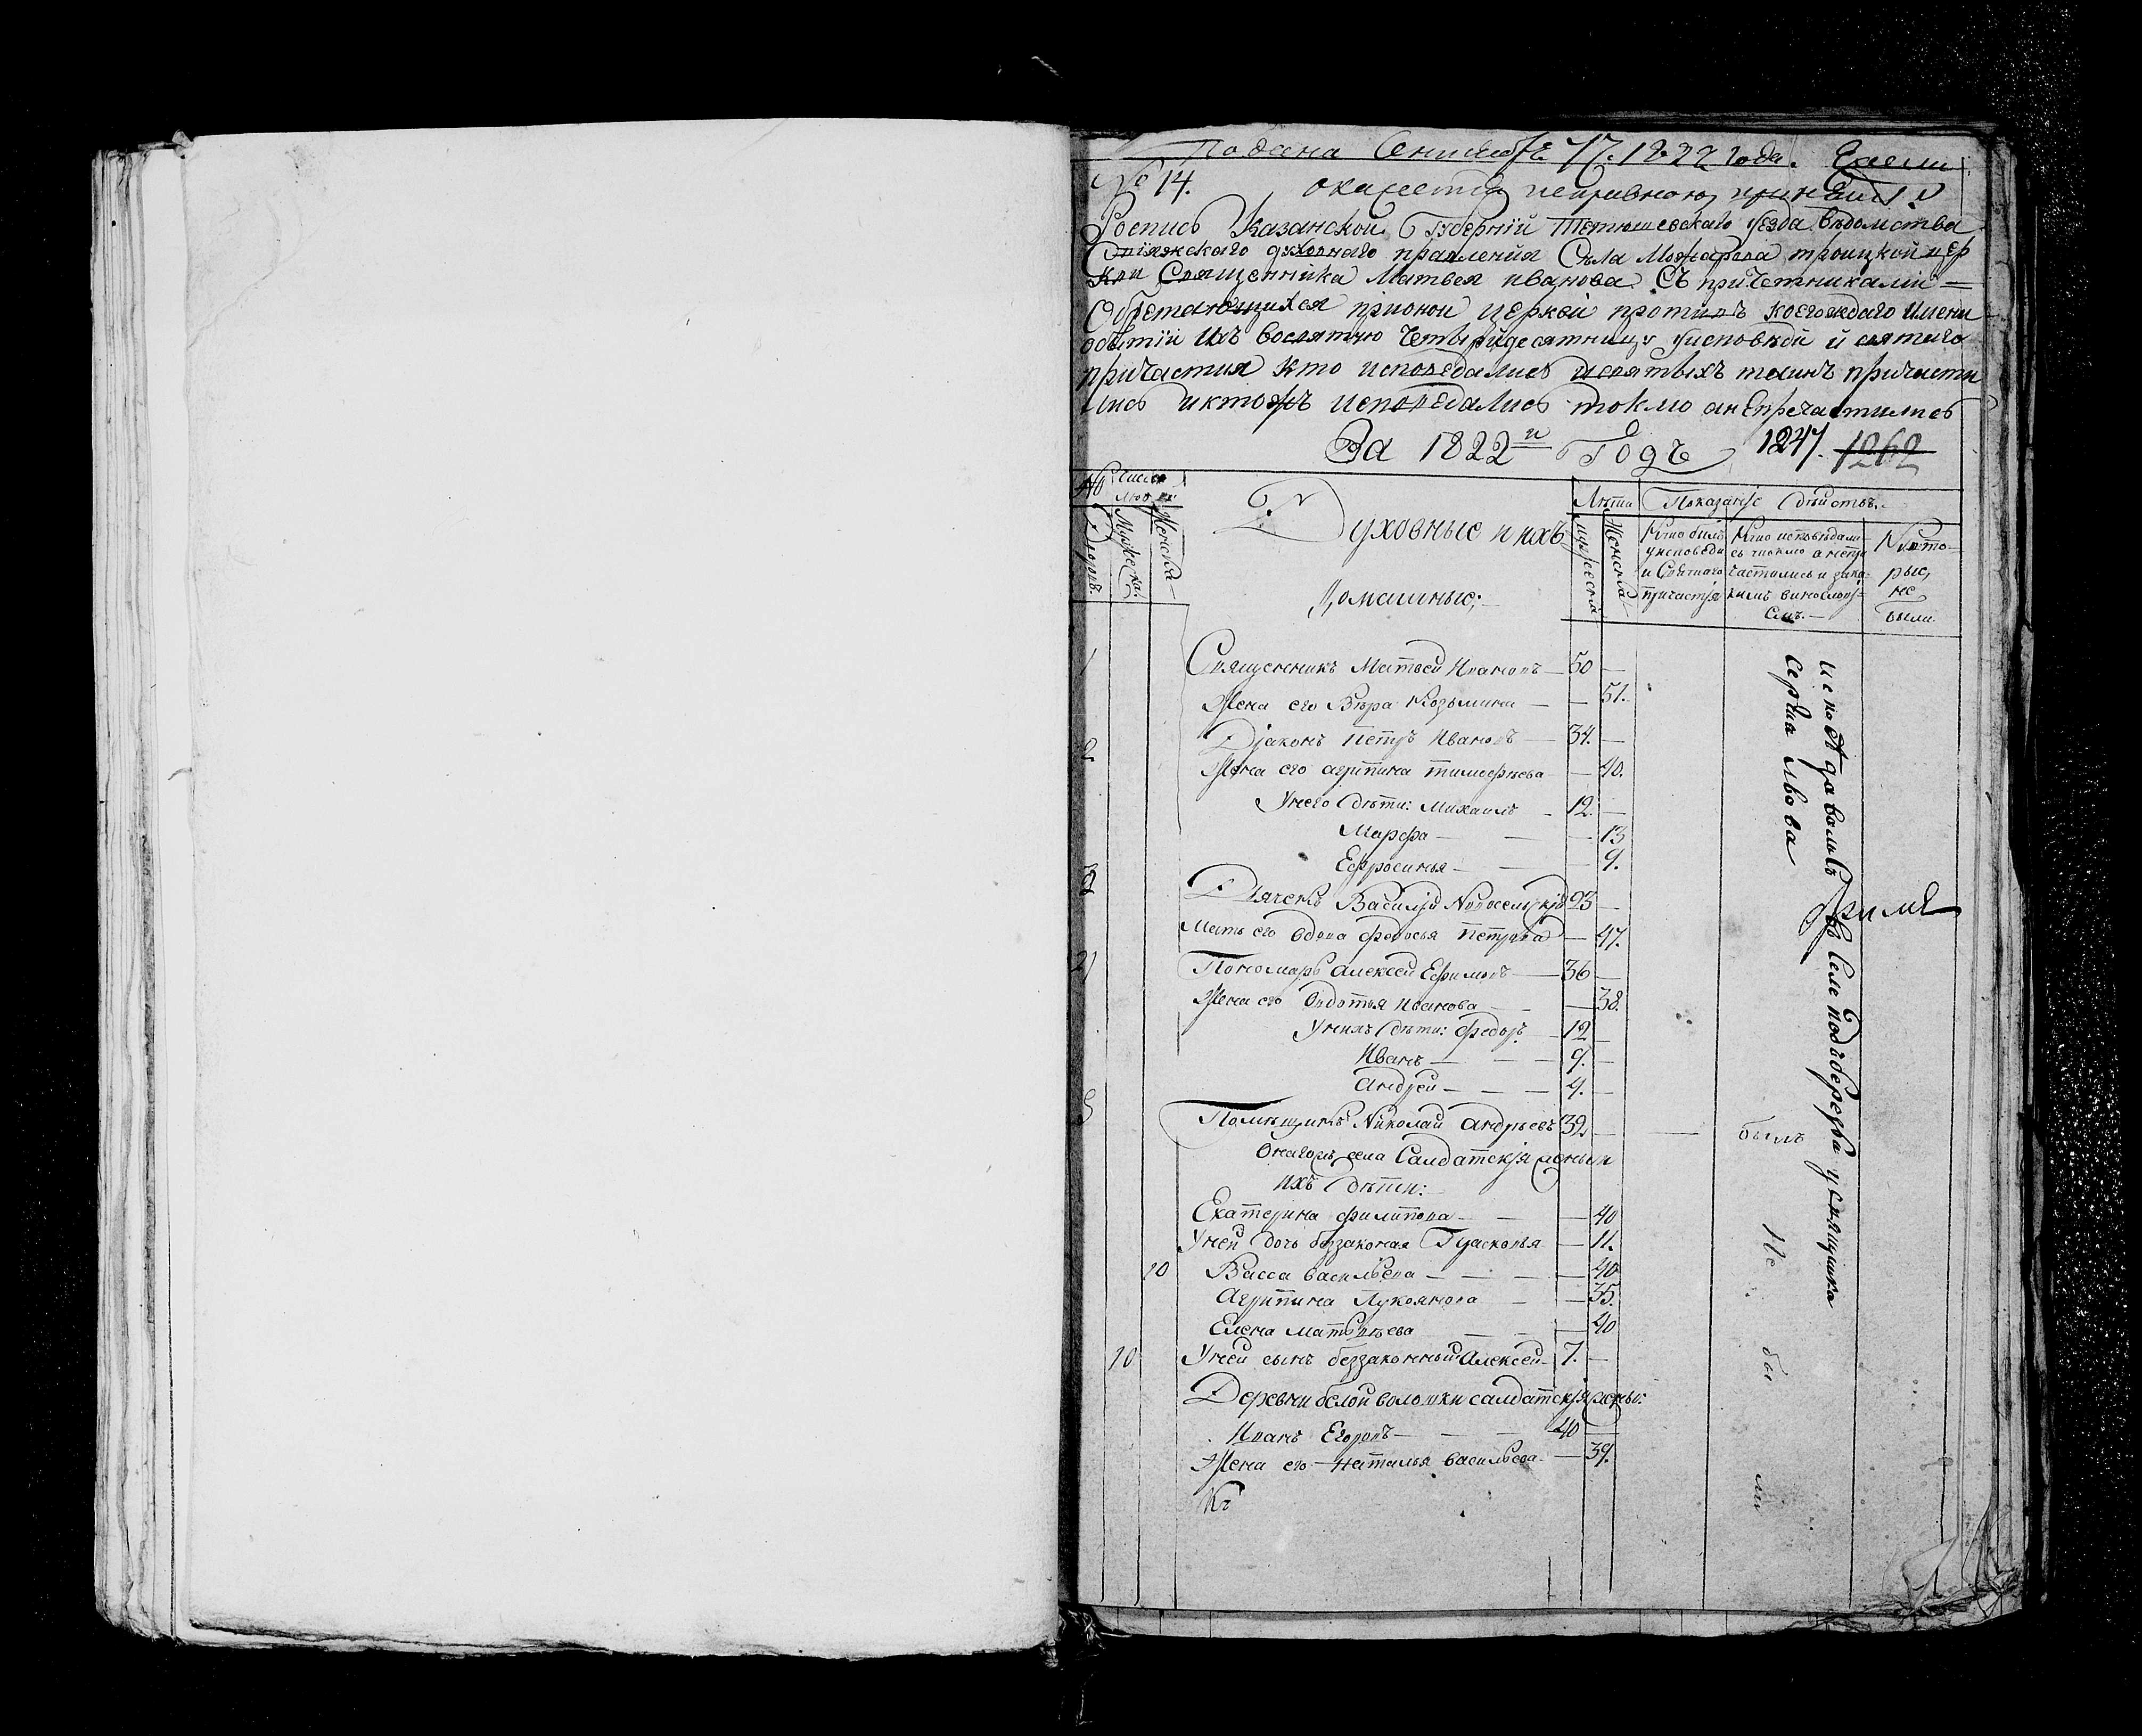 Подана Сентября 17. 1822 года. Ежели
№ 14. окажется неправною,
Роспись Казанской Губернïи Тетюшевскаго уезда Ведомства
Свïяжскаго духовнаго правленïя Села Можарова троицкой цер
кви Священника Матвея иванова Съ причетниками
Обретающихся прионой церкви противъ коегождаго имени
обытïи ихъ восвятую четыридесятницу уисповеди и святаго
причастия кто исповедались исвятыхъ таинъ причасти
лись иктожъ исповедались токмо анепречастились
За 1822й Годъ 1247. 1262
№ Число людей
Дворовъ. Мужеска. Женска
Духовные и ихъ
Домашные;
Лѣта Показанiе Дѣйствъ.
мужеска Женска
Кто были уисповеди и Святаго причастiя
Кто исповѣдались токмо а непричастились и зака-кимъ винословiемъ.
Которые, не были.
1 Священникъ Матвей Ивановъ 50
Жена его Вѣра Козьмина 51.
2 Дiаконъ Петръ Ивановъ 34.
Жена его агрипина тимофѣева 40.
Унего дѣти: Михаилъ 12.
Марфа 13
Ефросинья 9.
3 Дячекъ Василiй Новосельцкiй 23
Мать его вдова федосья Петрова 47.
4 Пономарь алексей Ефимовъ 36
Жена его Овдотья Иванова 38.
Унихъ дѣти: Федоръ 12
Иванъ 9.
Андрей 4.
5 Помѣщикъ Николай Андреевъ 39 былъ
Онагожъ села Салдатскiя жоны и
ихъ дѣти:
Екатерина филипова 40
Уней дочь беззаконая Прасковья 11.
10 Васса васильева 40
Агрипина Лукоянова 35.
Елена матвѣева 40
10 Уней сынъ беззаконный Алексей 7.
Деревни белой воложки салдатскiя жены:
Иванъ Егоровъ 40
Жена его Наталья васильева 39.
Къ
исповедавалсь во Селе подъберезье у священика
Сергия львова
Не бы ли